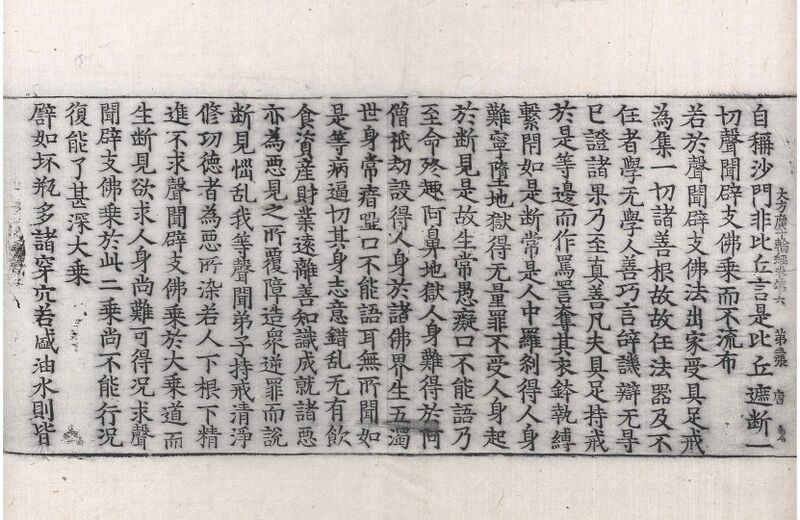 大方廣十輪經卷第六 第三張 唐
自稱沙門非比丘言是比丘遮断一
切聲聞辟支佛乘而不流布
若於聲聞辟支佛法出家受具足戒
為集一切諸善根故故任法器及不
任者學无學人善巧言辝譏辯无㝵
已證諸果乃至真善凡夫具足持戒
於是等邊而作罵詈奪其衣鉢執縛
繫閇如是断常是人中羅刹得人身
難寧墮地獄得无量罪不受人身起
於断見是故生常愚癡口不能語乃
至命終趣阿鼻地獄人身難得於阿
僧祇劫設得人身於諸佛界生五濁
世身常瘖瘂口不能語耳無所聞如
是等病逼切其身志意錯乱无有飲
食資產財業遠離善知識成就諸惡
亦為惡見之所覆障造衆逆罪而說
断見惱乱我等聲聞弟子持戒清淨
修功德者為惡所染若人下根下精
進不求聲聞辟支佛乘於大乘道而
生断見欲求人身尚難可得况求聲
聞辟支佛乘於此二乘尚不能行况
復能了甚深大乘
譬如坏瓶多諸穿穴若盛油水則皆